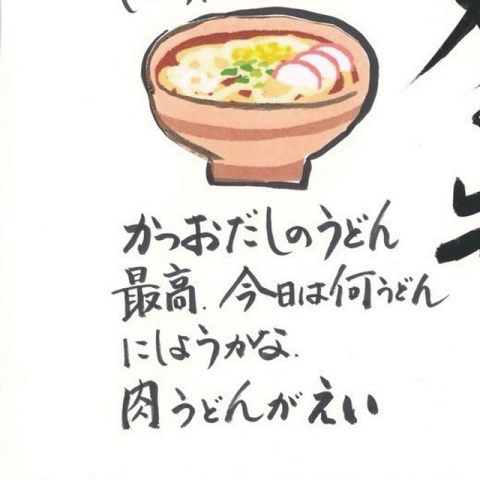 かつおだしのうどん
最高.今日は何うどん
にしようかな.
肉うどんがえい